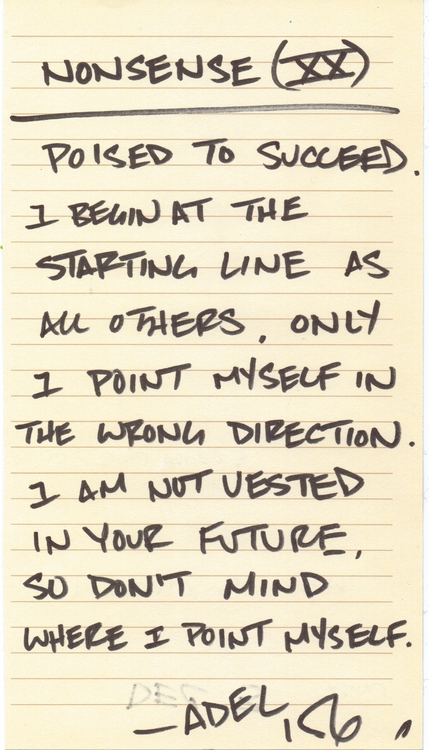 NONSENSE (XX)
POISED TO SUCCEED.
I BEGIN AT THE
STARTING LINE AS
ALL OTHERS, ONLY
I POINT MYSELF IN
THE WRONG DIRECTION.
I AM NOT VESTED
IN YOUR FUTURE,
SO DON'T MIND
WHERE I POINT MYSELF.
—ADEL,